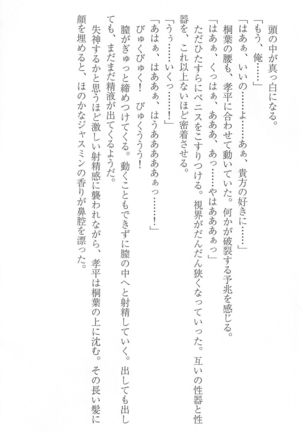 頭の中が真っ白になる。
「もう、俺……」
「はあぁ、いいの……よ……あぁ、貴方の好きに……」
桐葉の腰も、孝平に合わせて動いていた。何かが破裂する予兆を感じる。
「はあぁ、くっはぁ、あああ、あっ……やはああぁ」
ただひたすらにペニスをこすりつける。視界がだんだん狭くなっていった。互いの性器と性
器を、これ以上ないほど密着させる。
「うう……いくっ…！」
「あはぁ、はああぁ、はうああああぁぁっ……！」
びゅくびゅく！　びゅくうううう！
膣がぎゅっと締めつけてくる。動くこともできずに膣の中へと射精していく。出しても出し
ても、まだまだ精液が出てくるようだ。
失神するかと思うほど激しい射精感に襲われながら、孝平は桐葉の上に沈む。その長い髪に
顔を埋めると、ほのかなジャスミンの香りが鼻腔を漂った。